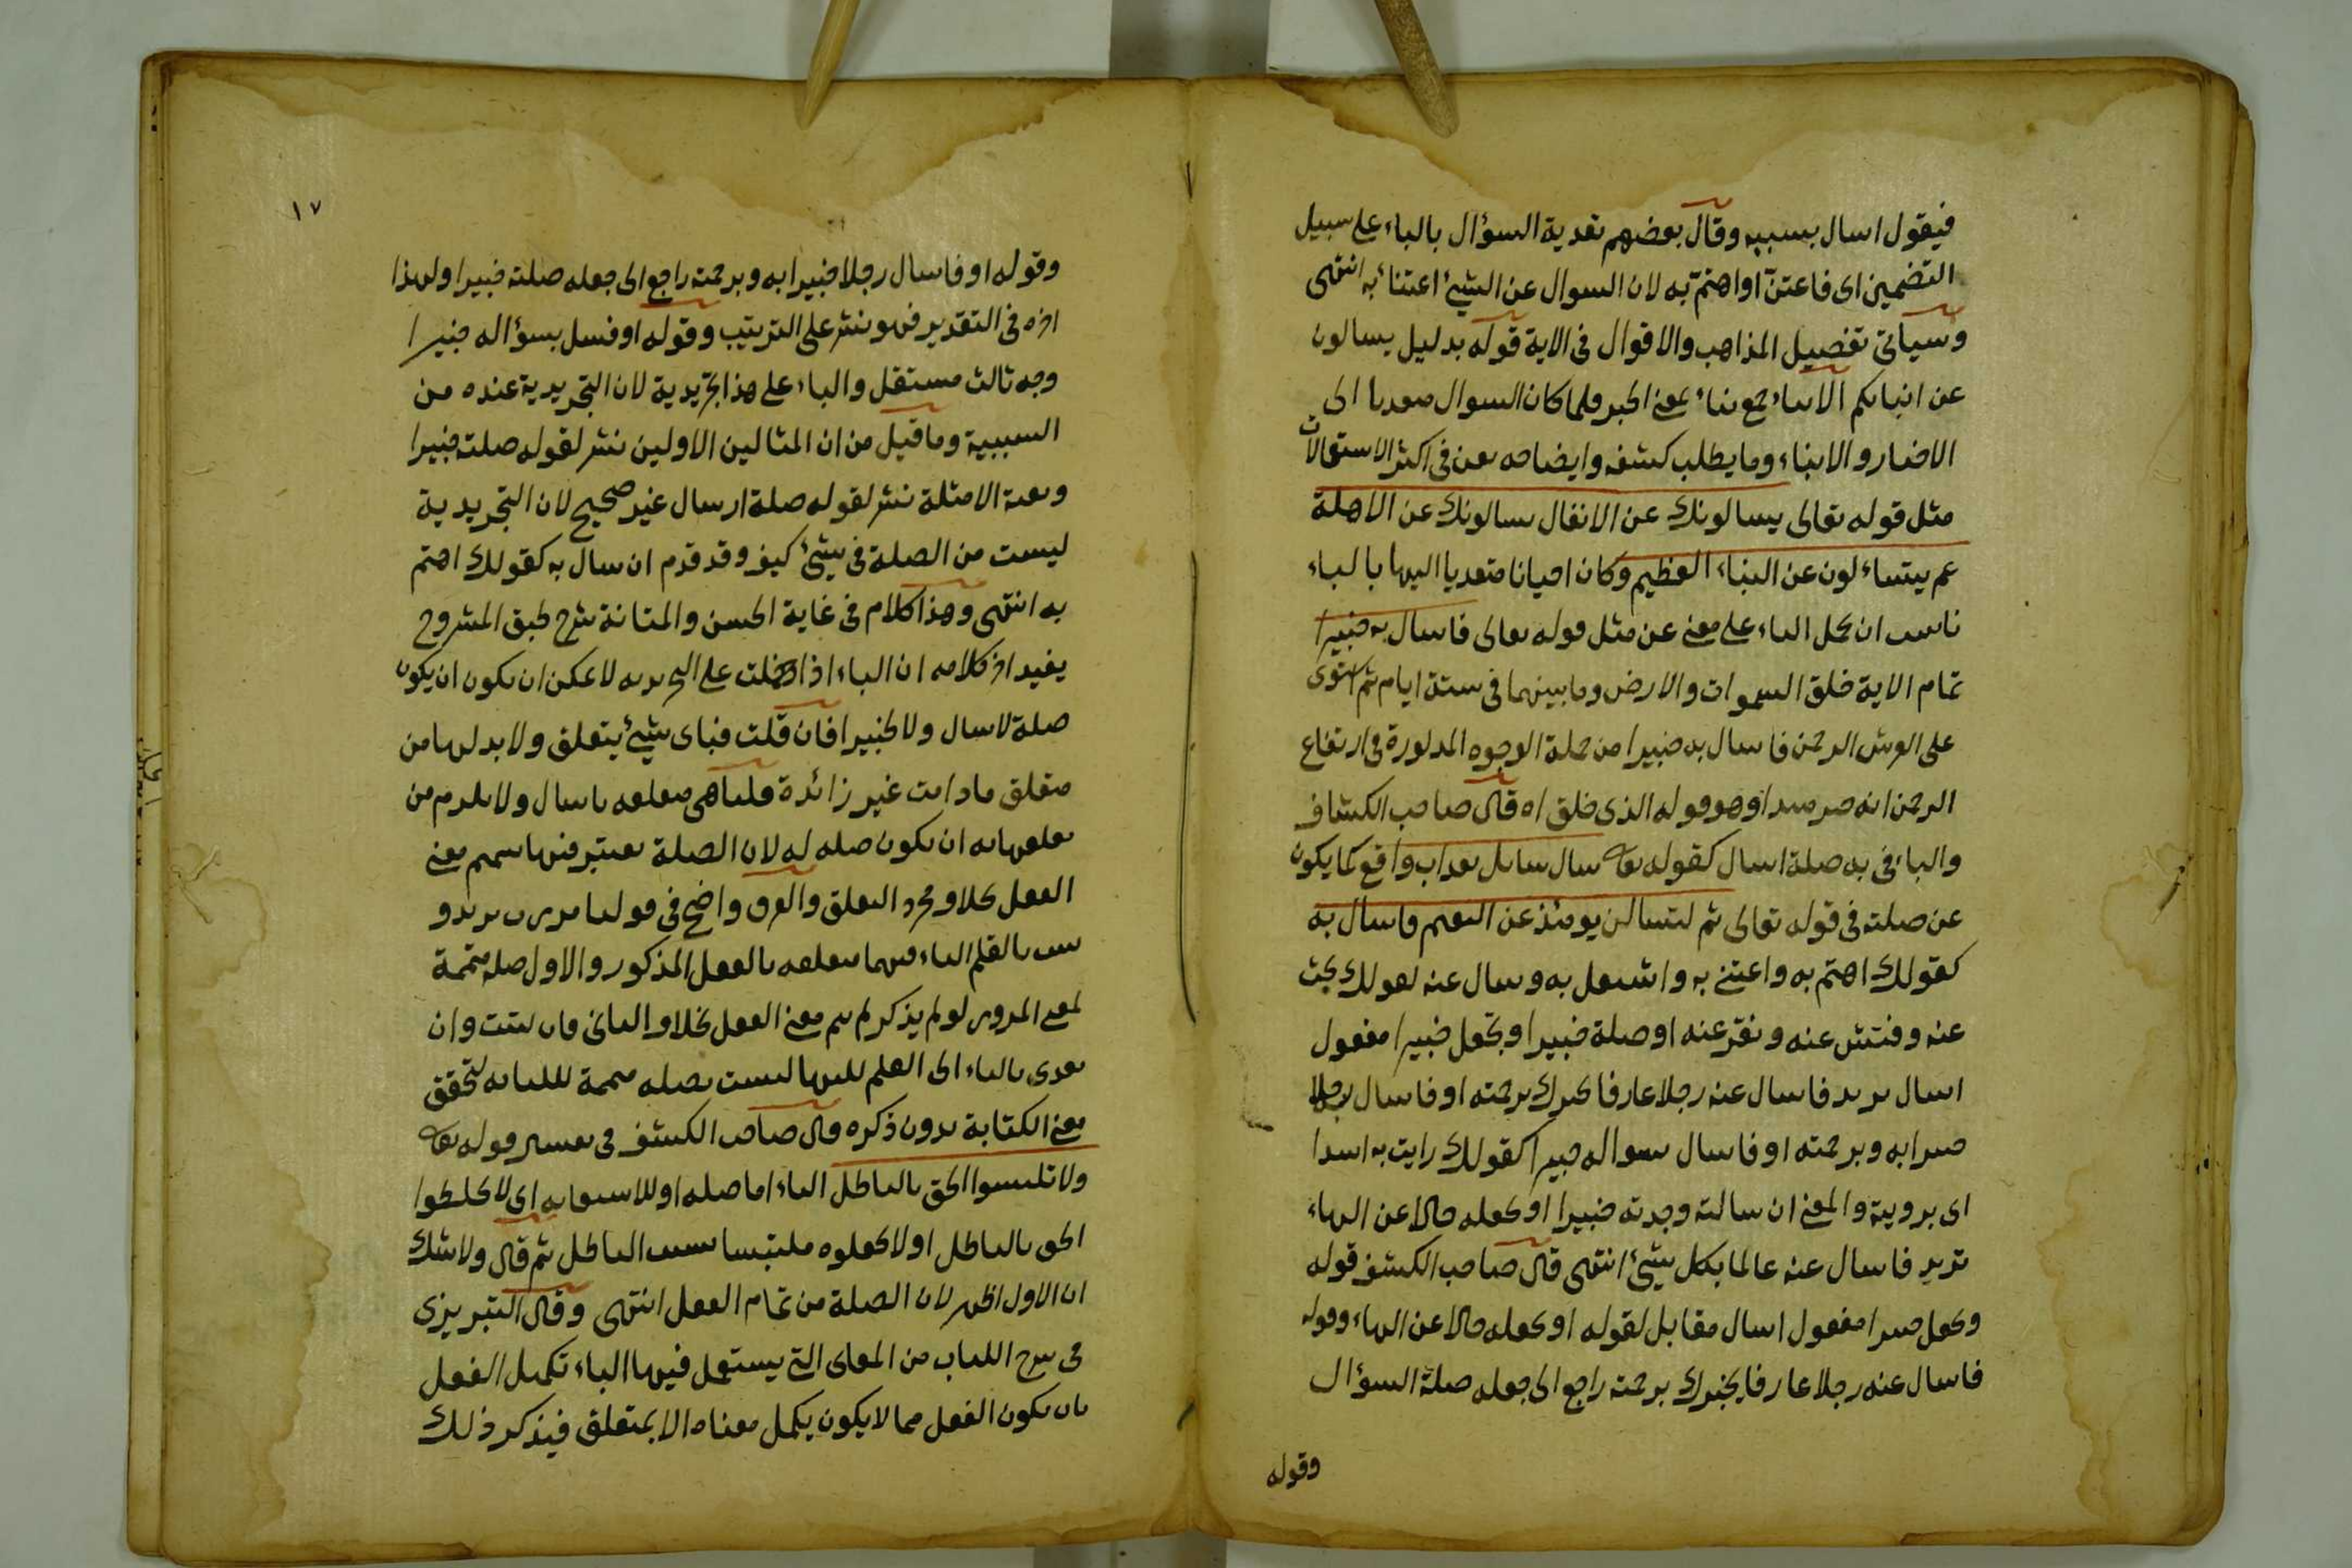 فيقول اسال بسببه وقال بعضهم تعدية السؤال بالباء على سبيل
التضمين اى فاعتن او اهتم به لان السوال عن الشئ اعتناء به انتهى
وسياتى تفصيل المذاهب والاقوال فى الاية قوله بدليل يسالون
عن انبائكم الانباء جمع نباء بمعنى الخبر فلما كان السوال متعديا الى
الاخبار والانباء وما يطلب كشفه وايضاحه بعن فى اكثر الاستعمالات
مثل قوله تعالى يسالونك عن الانفال يسالونك عن الاهلة
عم يتساءلون عن النباء العظيم وكان احيانا متعديا اليها بالباء
ناسب ان يحمل الباء على معنى عن مثل قوله تعالى فاسال به خبيرا
تمام الاية خلق السموات والارض وما بينهما فى ستة ايام ثم استوى
على العرش الرحمن فاسال به خبيرا من جملة الوجوه المذكورة فى ارتفاع
الرحمن انه خبر مبتدا وهو قوله الذى خلق اه قال صاحب الكشاف
والباء فى به صلة اسال كقوله تعا سال سائل بعذاب واقع كما يكون
عن صلته فى قوله تعالى ثم لتسالن يومئذ عن النعيم فاسال به
كقولك اهتم به واعتنى به واشتغل به وسال عنه كقولك بحث
عنه وفتش عنه ونقر عنه او صلة خبيرا وتجعل خبيرا مفعول
اسال يريد فاسال عنه رجلا عارفا يخبرك برحمته او فاسال رجلا
خبيرا به وبرحمته او فاسال بسواله خبيرا كقولك رايت به اسدا
اى برويته والمعنى ان سالته وجدته خبيرا او تجعله حالا عن الهاء
تريد فاسال عنه عالما بكل شئ انتهى قال صاحب الكشف قوله
وتجعل خبيرا مفعول اسال مقابل لقوله او تجعله حالا عن الهاء وقوله
فاسال عنه رجلا عارفا يخبرك برحمته راجع الى جعله صلة السؤال
وقوله
١٧
وقوله او فاسال رجلا خبيرا به وبرحمته راجع الى جعله صلة خبيرا ولهذا
اخره فى التقدير فهو نشر على الترتيب وقوله او فسل بسؤاله خبيرا
وجه ثالث مستقل والباء على هذا تجريدية لان التجريدية عنده من
السببية وما قيل من ان المثالين الاولين نشر لقوله صلة خبيرا
وبقية الامثلة نشر لقوله صلة ارسال غير صحيح لان التجريدية
ليست من الصلة فى شئ كيف وقد قدم ان سال به كقولك اهتم
به انتهى وهذا كلام فى غاية الحسن والمتانة شرح طبق المشروح
يفيد اخر كلامه ان الباء اذا دخلت على التجريديه لا يمكن ان يكون ان يكون
صلة لاسال ولا لخبيرا فان قلت فباى شئ يتعلق ولا بد لها من
متعلق ما دامت غير زائدة قلنا هى متعلقه باسال ولا يلزم من
تعلقها به ان يكون صله له لان الصلة يعتبر فيها تتميم معنى
الفعل كلا ومجرد التعلق والفرق واضح فى قولنا مررت بزيد و
كتبت بالقلم الباء فيهما متعلقه بالفعل المذكور والاول صله متممة
لمعنى المرور لو لم يذكر لم يتم معنى الفعل بخلاف الثانى فان كتبت وان
تعدى بالباء الى القلم لكنها ليست بصله متممة للكتابه لتحقق
معنى الكتابة بدون ذكره قال صاحب الكشف فى تفسير قوله تعا
ولا تلبسوا الحق بالباطل الباء اما صله او للاستعانه اى لا تخلطوا
الحق بالباطل او لا تجعلوه ملتبسا بسبب الباطل ثم قال ولا شك
ان الاول اظهر لان الصلة من تمام الفعل انتهى وقال التبريزى
فى شرح اللباب من المعانى التى يستعمل فيها الباء تكميل الفعل
بان يكون الفعل مما لا يكون يكمل معناه الا بمتعلق فيذكر ذلك